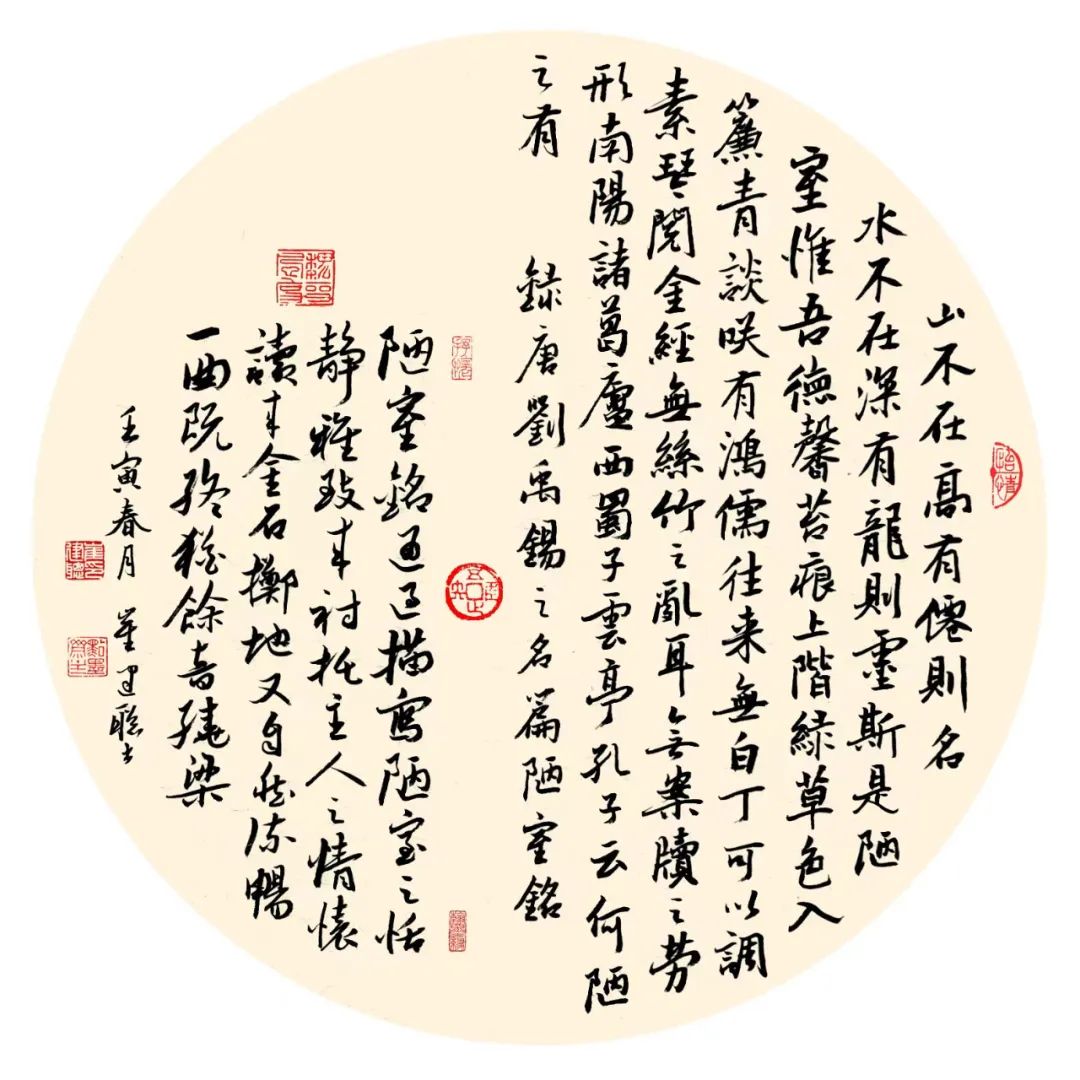 山不在高有僊則名
水不在深有龍則靈斯是陋
室惟吾德馨苔痕上階緑草色入
簾青談咲有鴻儒往来無白丁可以調
素琴閲金經無絲竹之亂耳無案牘之勞
形南陽諸葛廬西蜀子雲亭孔子云何陋
之有 録唐劉禹錫之名篇陋室銘
陋室銘通過描寫陋室之恬
靜雅致来衬托主人之情懷
讀来金石擲地又自然流暢
一曲既終猶餘音繞梁
壬寅春月 崔建聪書